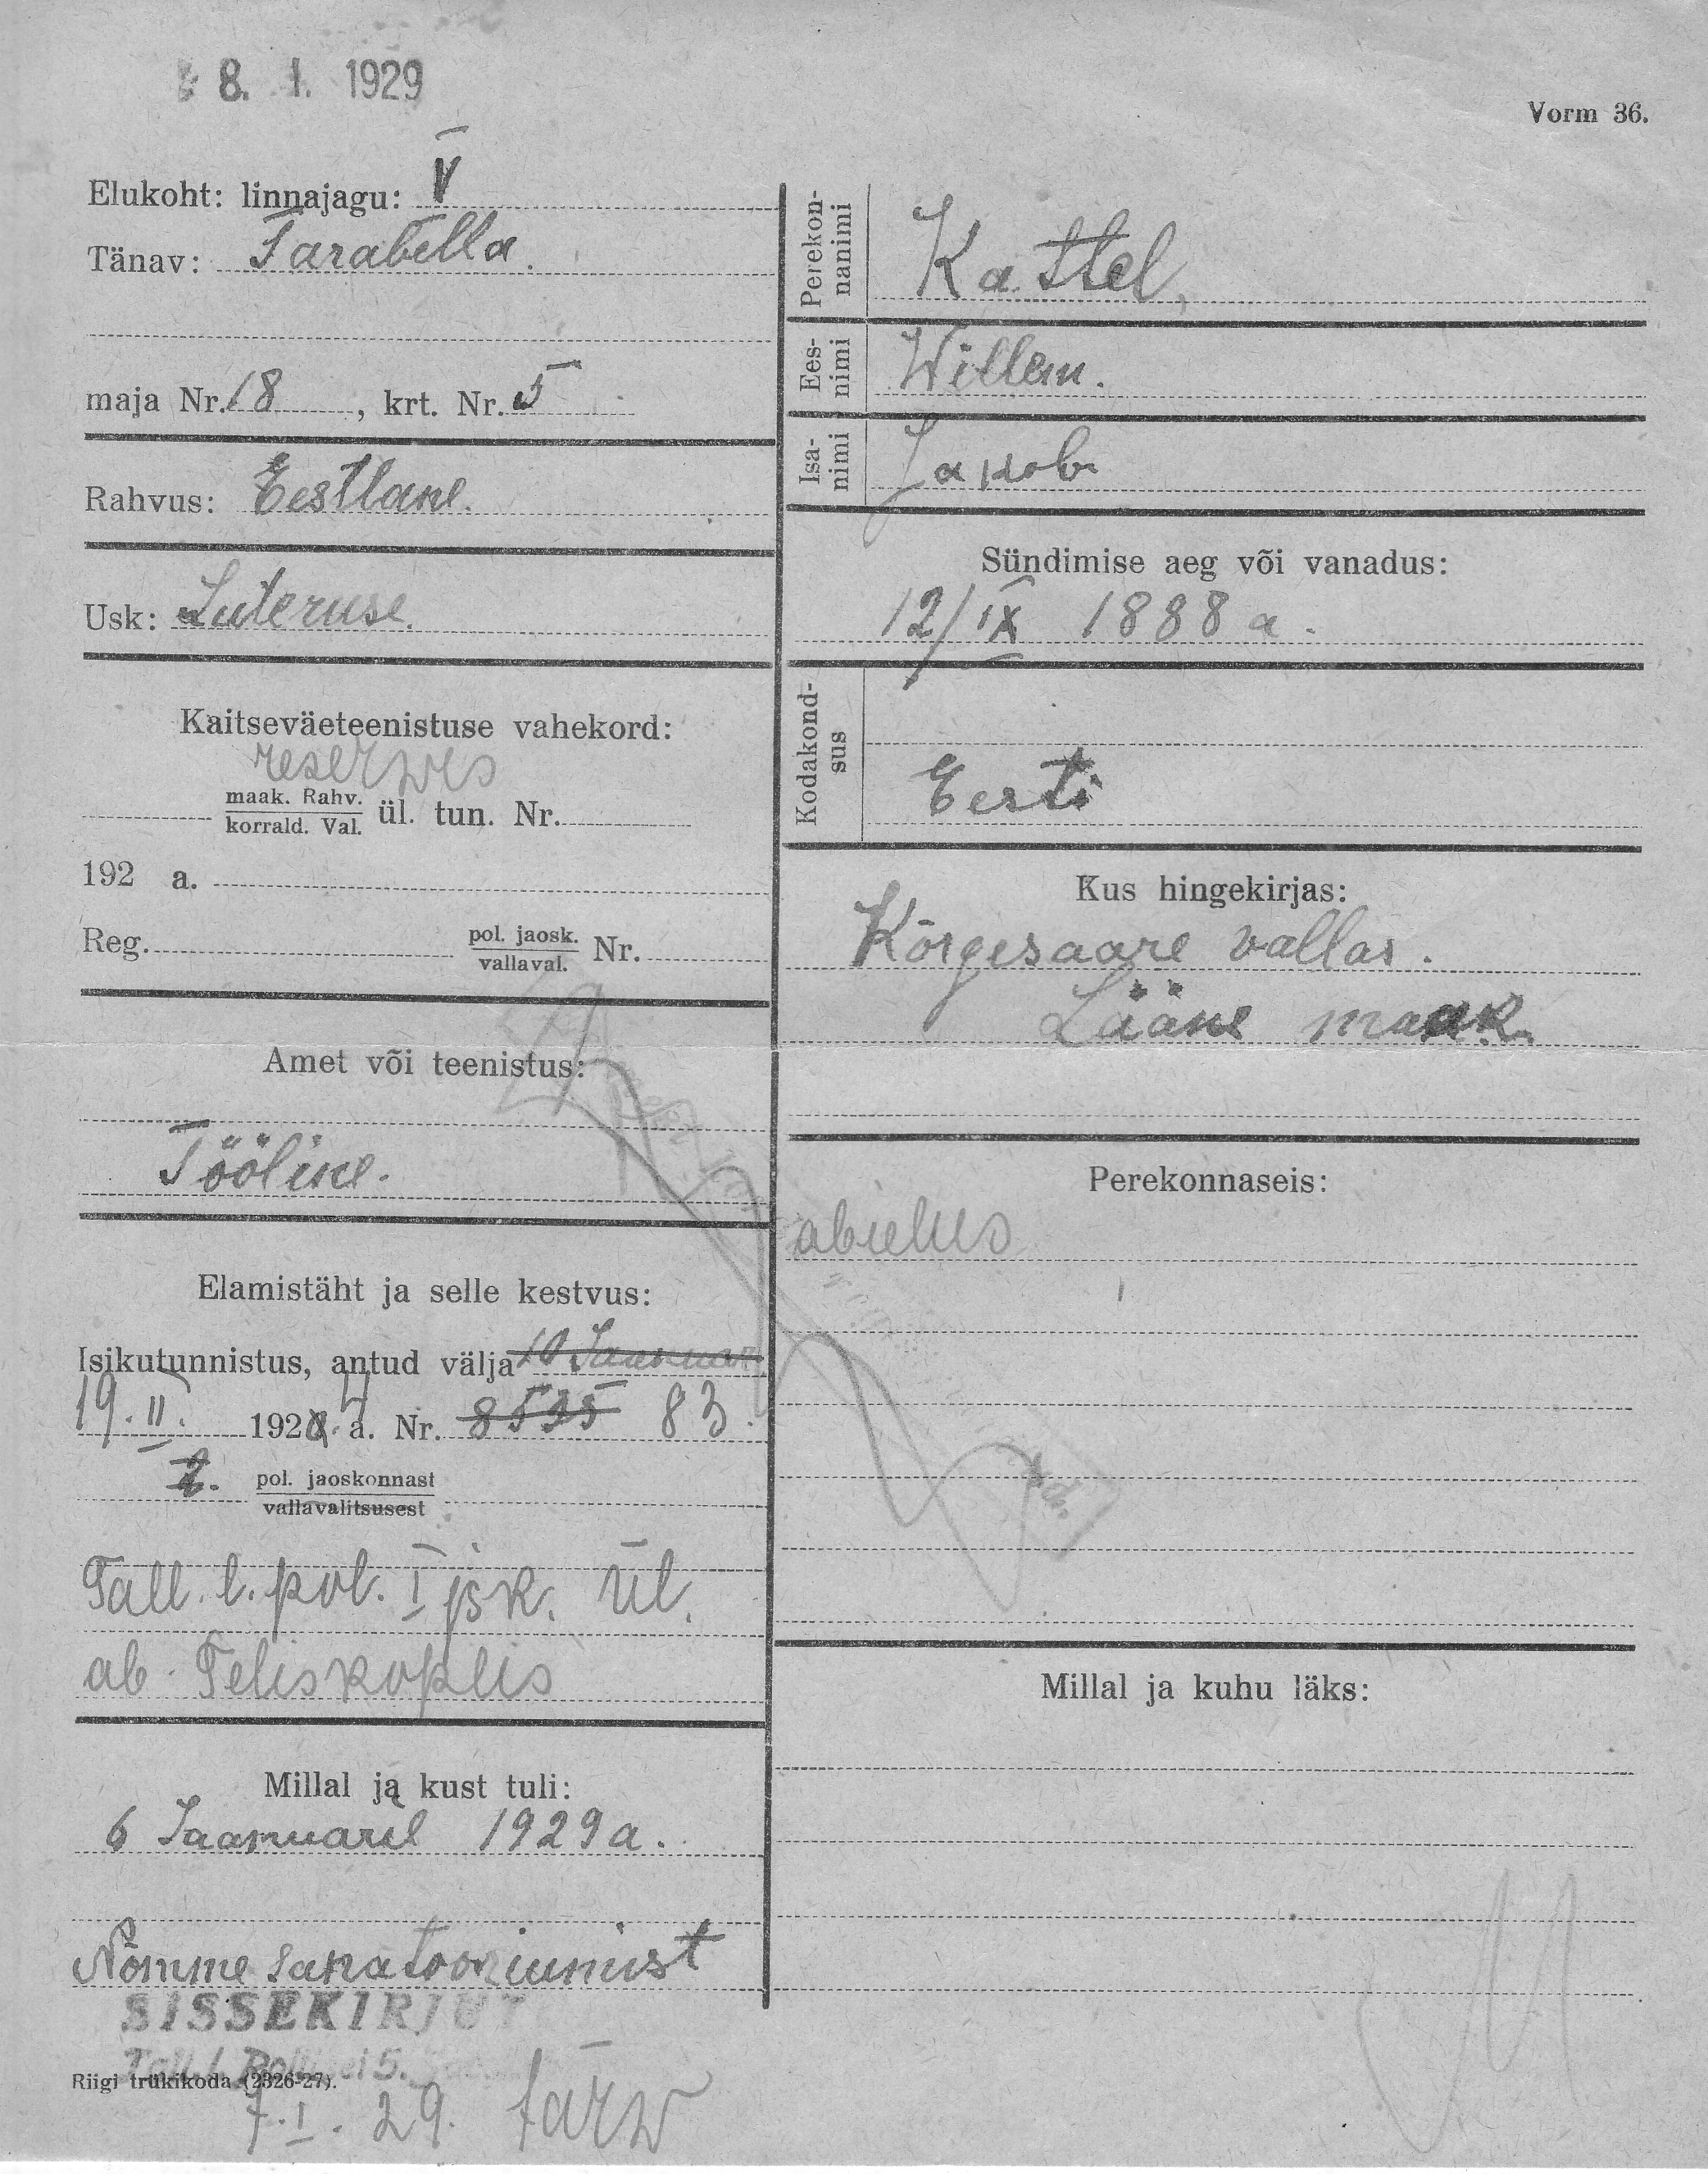 8. 1. 1929
Vorm 36.
Elukoht: linnajagu: V
Tänav: Tarabella.
maja Nr. 18, krt. Nr. 5
Rahvus: Eestlane.
Usk: Luteruse.
Kaitseväeteenistuse vahekord:
reserwis
maak. Rahv.
korrald. Val. ül. tun. Nr.
192 a.
Reg. pol. jaosk.
vallaval. Nr.
Amet või teenistus:
Tööline.
Elamistäht ja selle kestvus:
Isikutunnistus, antud välja 10 Jaanuar
19. II. 1924 a. Nr. 8535 83.
2. pol. jaoskonnast
vallavalitsusest
Tall. l. pol. I jsk. ül.
ab. Teliskoplis
Millal ja kust tuli:
6 Jaanuaril 1929 a.
Nõmme sanatooriumist
SISSEKIRJUT
Tall. l. Politsei 5.
Riigi trükikoda (2326-27).
7. I. 29. Järw
Perekon-
nanimi
Kattel,
Ees-
nimi
Willem.
Isa-
nimi
Jakob
Sündimise aeg või vanadus:
12/IX 1888 a.
Kodakond-
sus
Eesti
Kus hingekirjas:
Kõrgesaare vallas.
Lääne maak.
Perekonnaseis:
abielus
Millal ja kuhu läks: